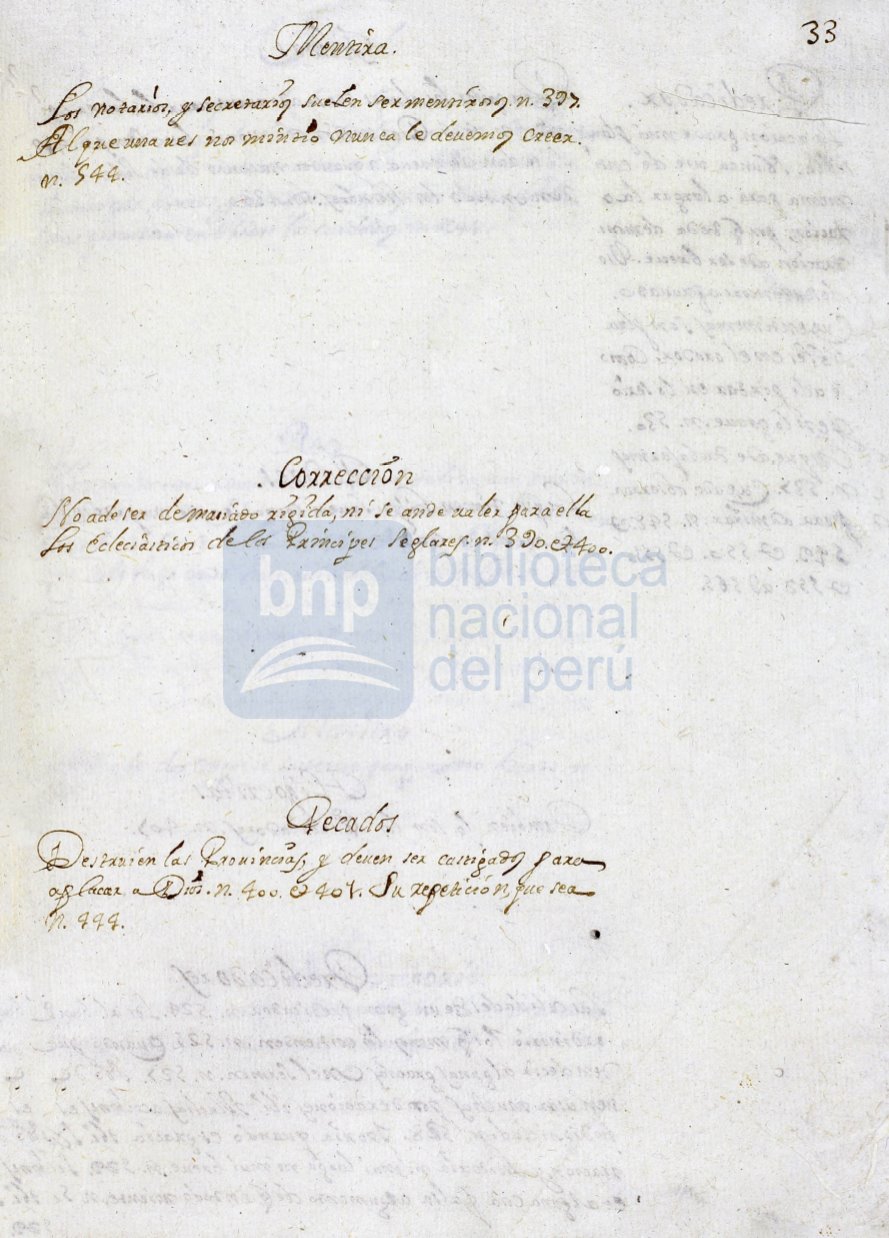 33
Mentira.
Los notarios, y secretarios suelen ser mentirosos n. 397.
Al que una ves nos mintio nunca le devemos creer.
n. 544.
Correccion
No ade ser demasiado rigida, ni se ande valer para ella
los Ecleciasticos de los Principes Seglares. n. 390. et 400.
bnp biblioteca
nacional
del perú
Pecados
Destruien las Provincias, y deven ser castigados para
aplacar a Dios. n. 400. et 401. Su repeticion que sea
n. 444.